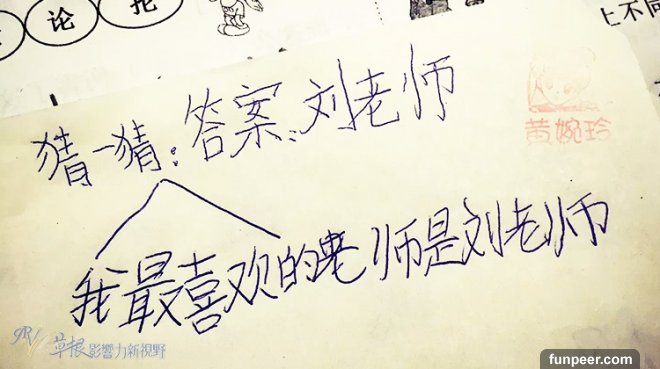 论
上不同
猜一猜:答案:刘老师
黄婉玲
我最喜欢的老师是刘老师
草根影響力新視野
funpeer.com